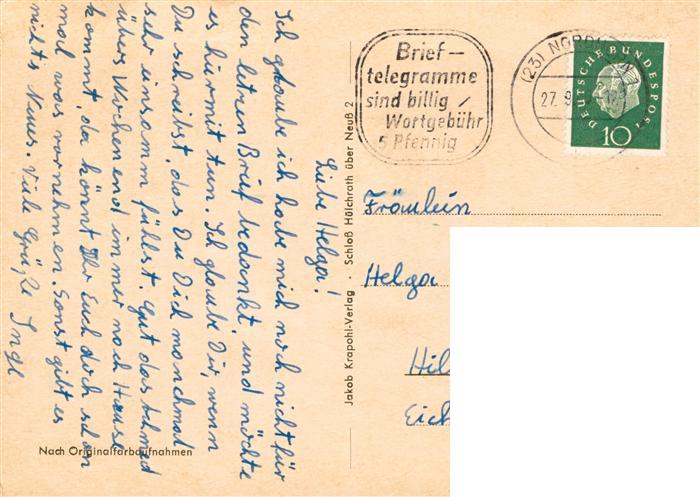 Liebe Helga!
Ich glaube ich habe mich noch nicht für
den letzen Brief bedankt, und möchte
es hirmit tun. Ich glaube Dir, wenn
Du schreibst, das Du Dich manchmal
sehr einsamm fühlst. Gut das Achmed
übers Wochenend immer nach Hause
kommt, da könnt Ihr Euch doch schon
mal was vornehmen. Sonst gibt es
nichts Neues. Viele Grüße Inge
Nach Originalfarbaufnahmen
Jakob Krapohl-Verlag · Schloß Hülchrath über Neuß 2
Brief-
telegramme
sind billig
Wortgebühr
5 Pfennig
(23) NORD
27. 9.
DEUTSCHE BUNDESPOST
10
Fräulein
Helga
Hil
Eich